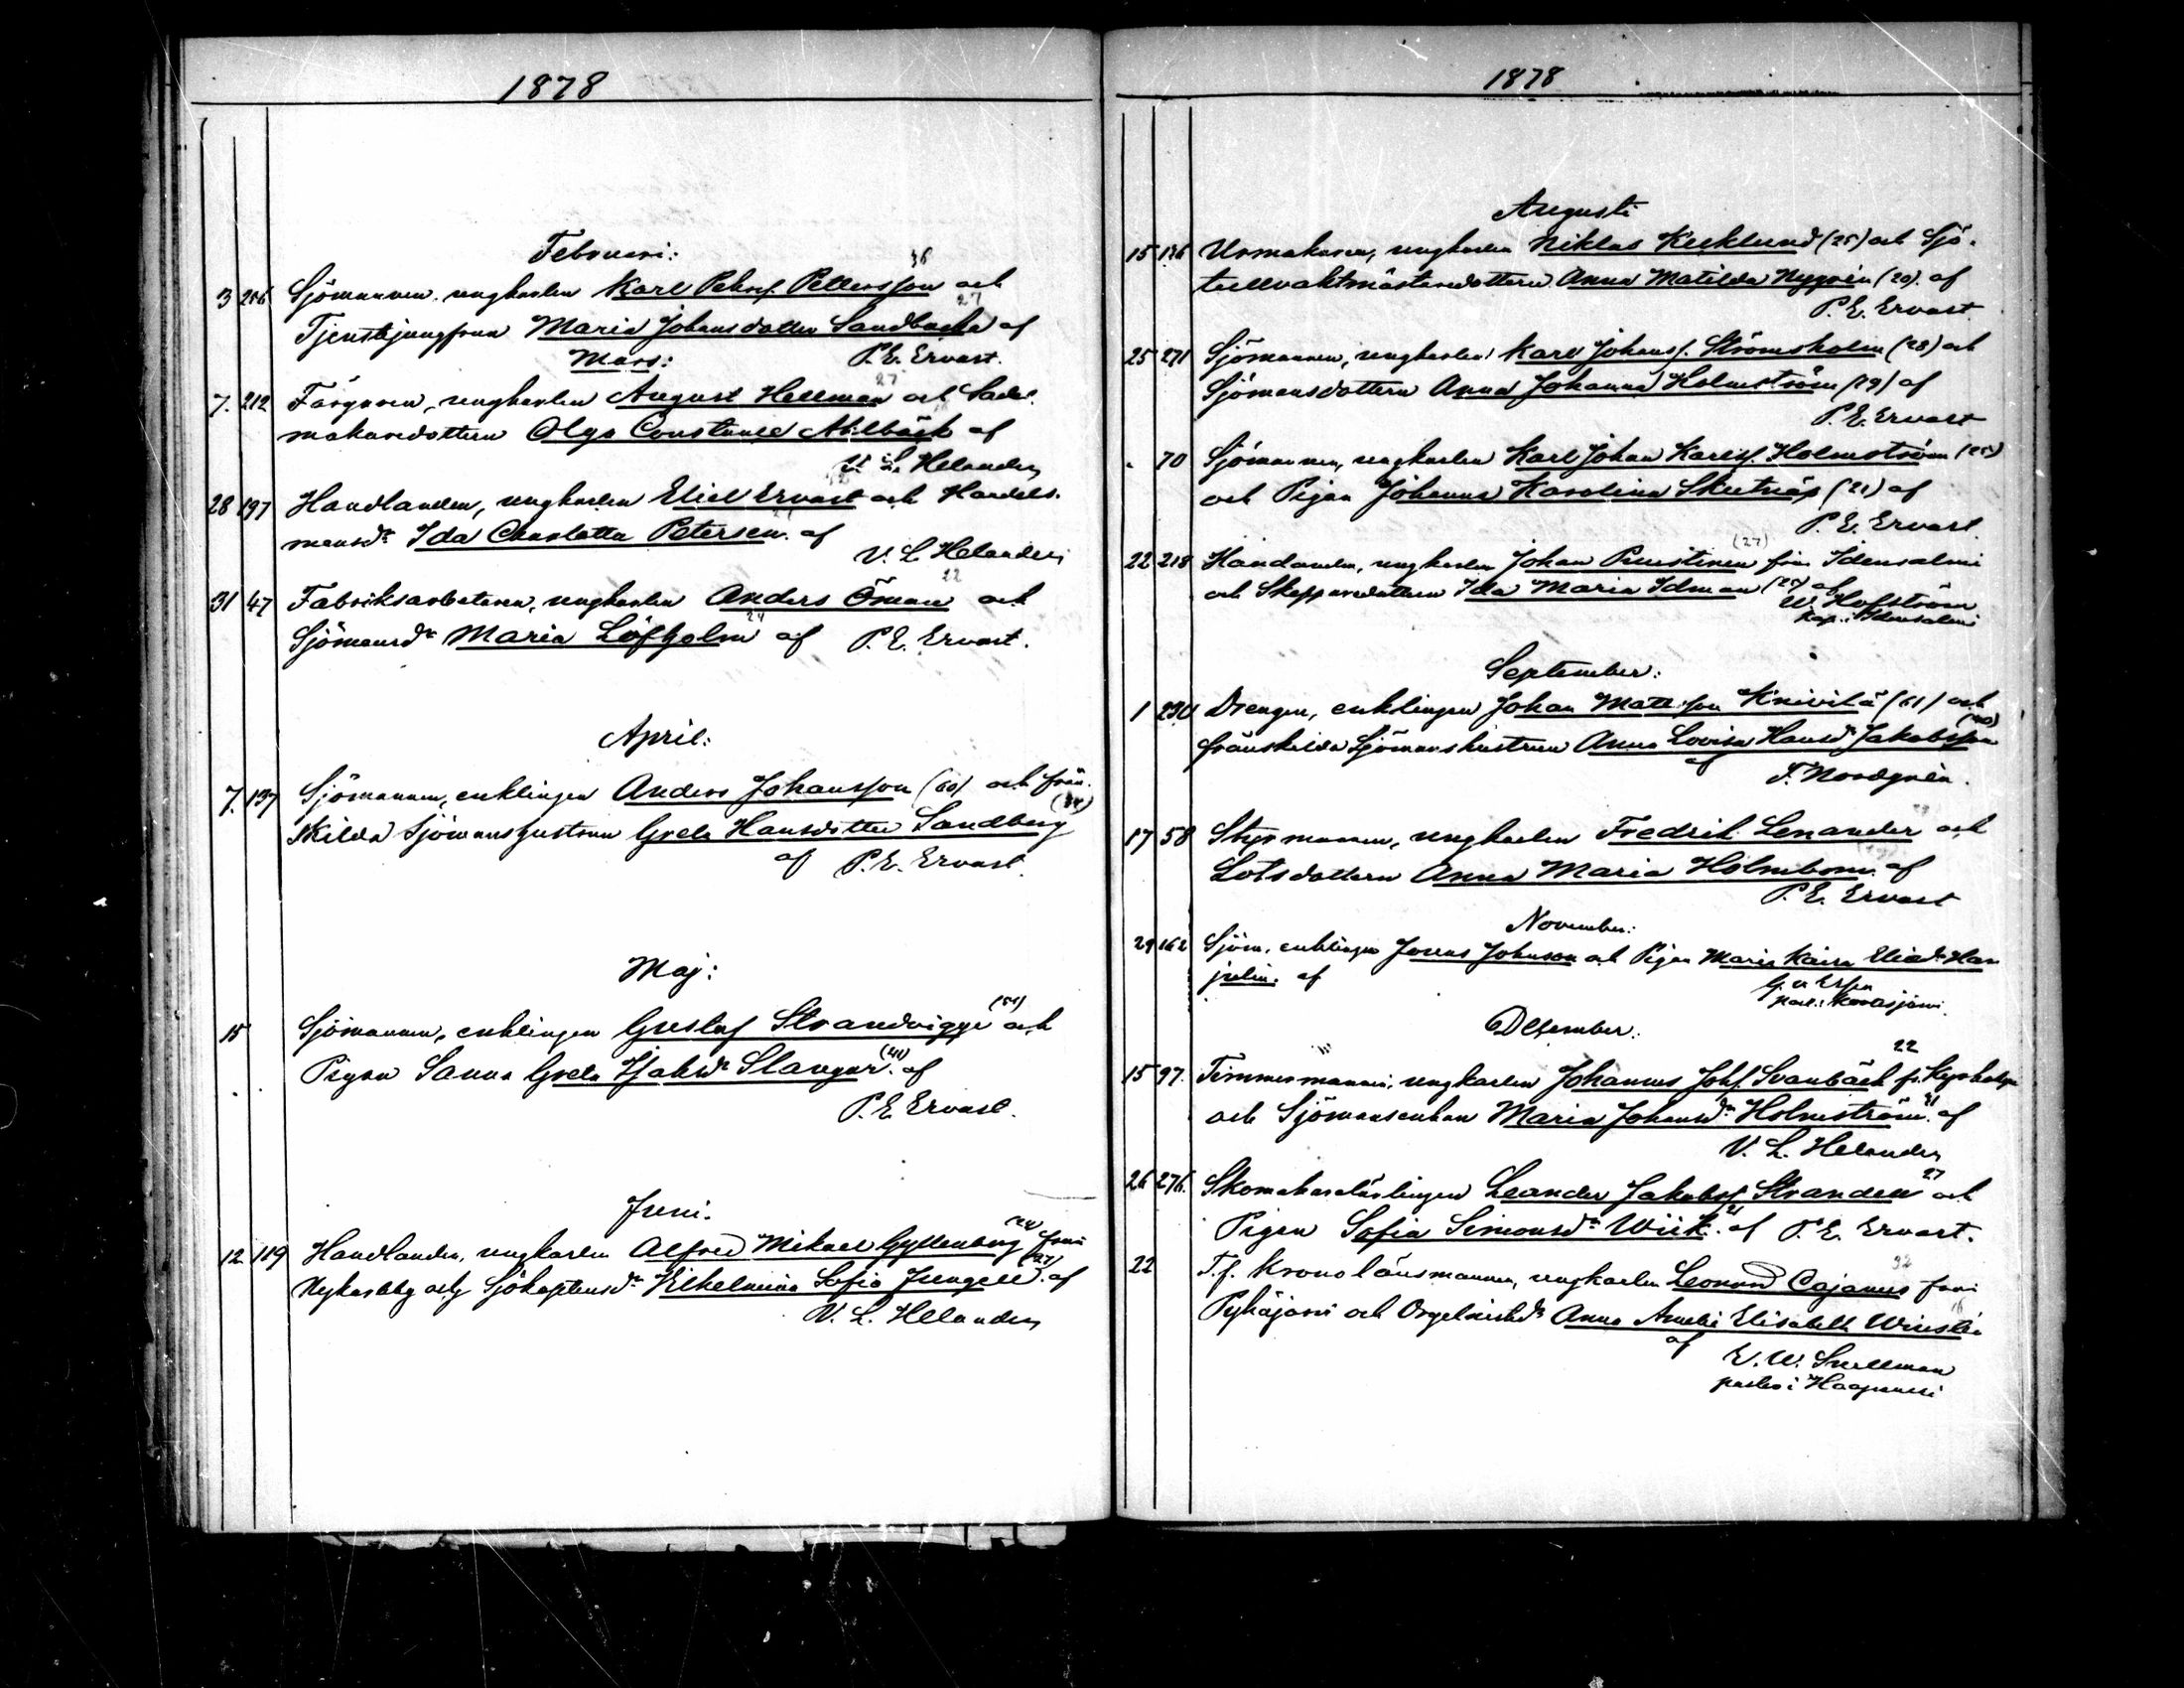 1878
Februari:
36
3 206 Sjömannen, ungkarlen Karl Pehrsf. Pettersson och
27
Tjenstejungfrun Maria Johansdotter Sandbacka af
Mars: P. E. Ervast.
27
7. 212 Färgaren, ungkarlen August Hellman och Sadel-
makaredottern Olga Constance Ahlbäck af
V. L. Helander
28 197 Handlanden, ungkarlen Eliel Ervast och Handels-
mansdr Ida Charlotta Petersen. af
V. L. Helander
22
31 47 Fabriksarbetaren, ungkarlen Anders Öman och
24
Sjömansdr Maria Löfholm af P. E. Ervast.
April:
7. 137 Sjömannen, enklingen Anders Johansson (60) och från-
skilda Sjömanshustrun Greta Hansdotter Sandberg
af P. E. Ervast.
Maj:
15 Sjömannen, enklingen Gustaf Strandvigge och
Pigan Sanna Greta Isaksdr Slangar (41). af
P. E. Ervast.
Juni.
12 119 Handlanden, ungkarlen Alfred Mikael Gyllenberg från
Nykarleby och Sjökaptensdr Vilhelmina Sofia Jungell (27). af
V. L. Helander
1878
Augusti
15 126 Urmakaren, ungkarlen Niklas Kecklund (25) och Sjö-
tullvaktmästaredottern Anna Matilda Nygrén (20). af
P. E. Ervast
25 271 Sjömannen, ungkarlen Karl Johansf. Strömsholm (28) och
Sjömansdottern Anna Johanna Holmström (29) af
P. E. Ervast
" 70 Sjömannen, ungkarlen Karl Johan Karlsf. Holmström (25)
och Pigan Johanna Karolina Skutnäs (21) af
P. E. Ervast.
(27)
22 218 Handlanden, ungkarlen Johan Puustinen från Idensalmi
och Skepparedottern Ida Maria Idman (20) af
W. Hofström
kap. i Idensalmi
September:
1 230 Drengen, enklingen Johan Mattsson Knivilä (61) och
(40)
frånskilda Sjömanshustrun Anna Lovisa Hansdr Jakobsson
af
F. Nordgrén.
29
17 58 Styrmannen, ungkarlen Fredrik Lenander och
Lotsdottern Anna Maria Holmbom af
P. E. Ervast
November:
29 162 Sjöm. enklingen Johnson och Pigan Maria Kaisa Eliædr Har
julin. af
past. i Karasjärvi
December:
22
15 97. Timmermannen, ungkarlen Johannes Johsf. Svanbäck fr. Kyrkobyn
41
och Sjömansenkan Maria Johansdr Holmström. af
V. L. Helander
27
26 276. Skomakarelärlingen Leander Jakobsf Stranden och
21
Pigan Sofia Simonsdr Wiik. af P. E. Ervast.
32
22 T. f. Kronolänsmannen, ungkarlen Leonard Cajanus från
Pyhäjoki och Orgelnistdr Anna Amalia Elisabeth Winstén
af
E. W. Snellman
pastor i Haapavesi